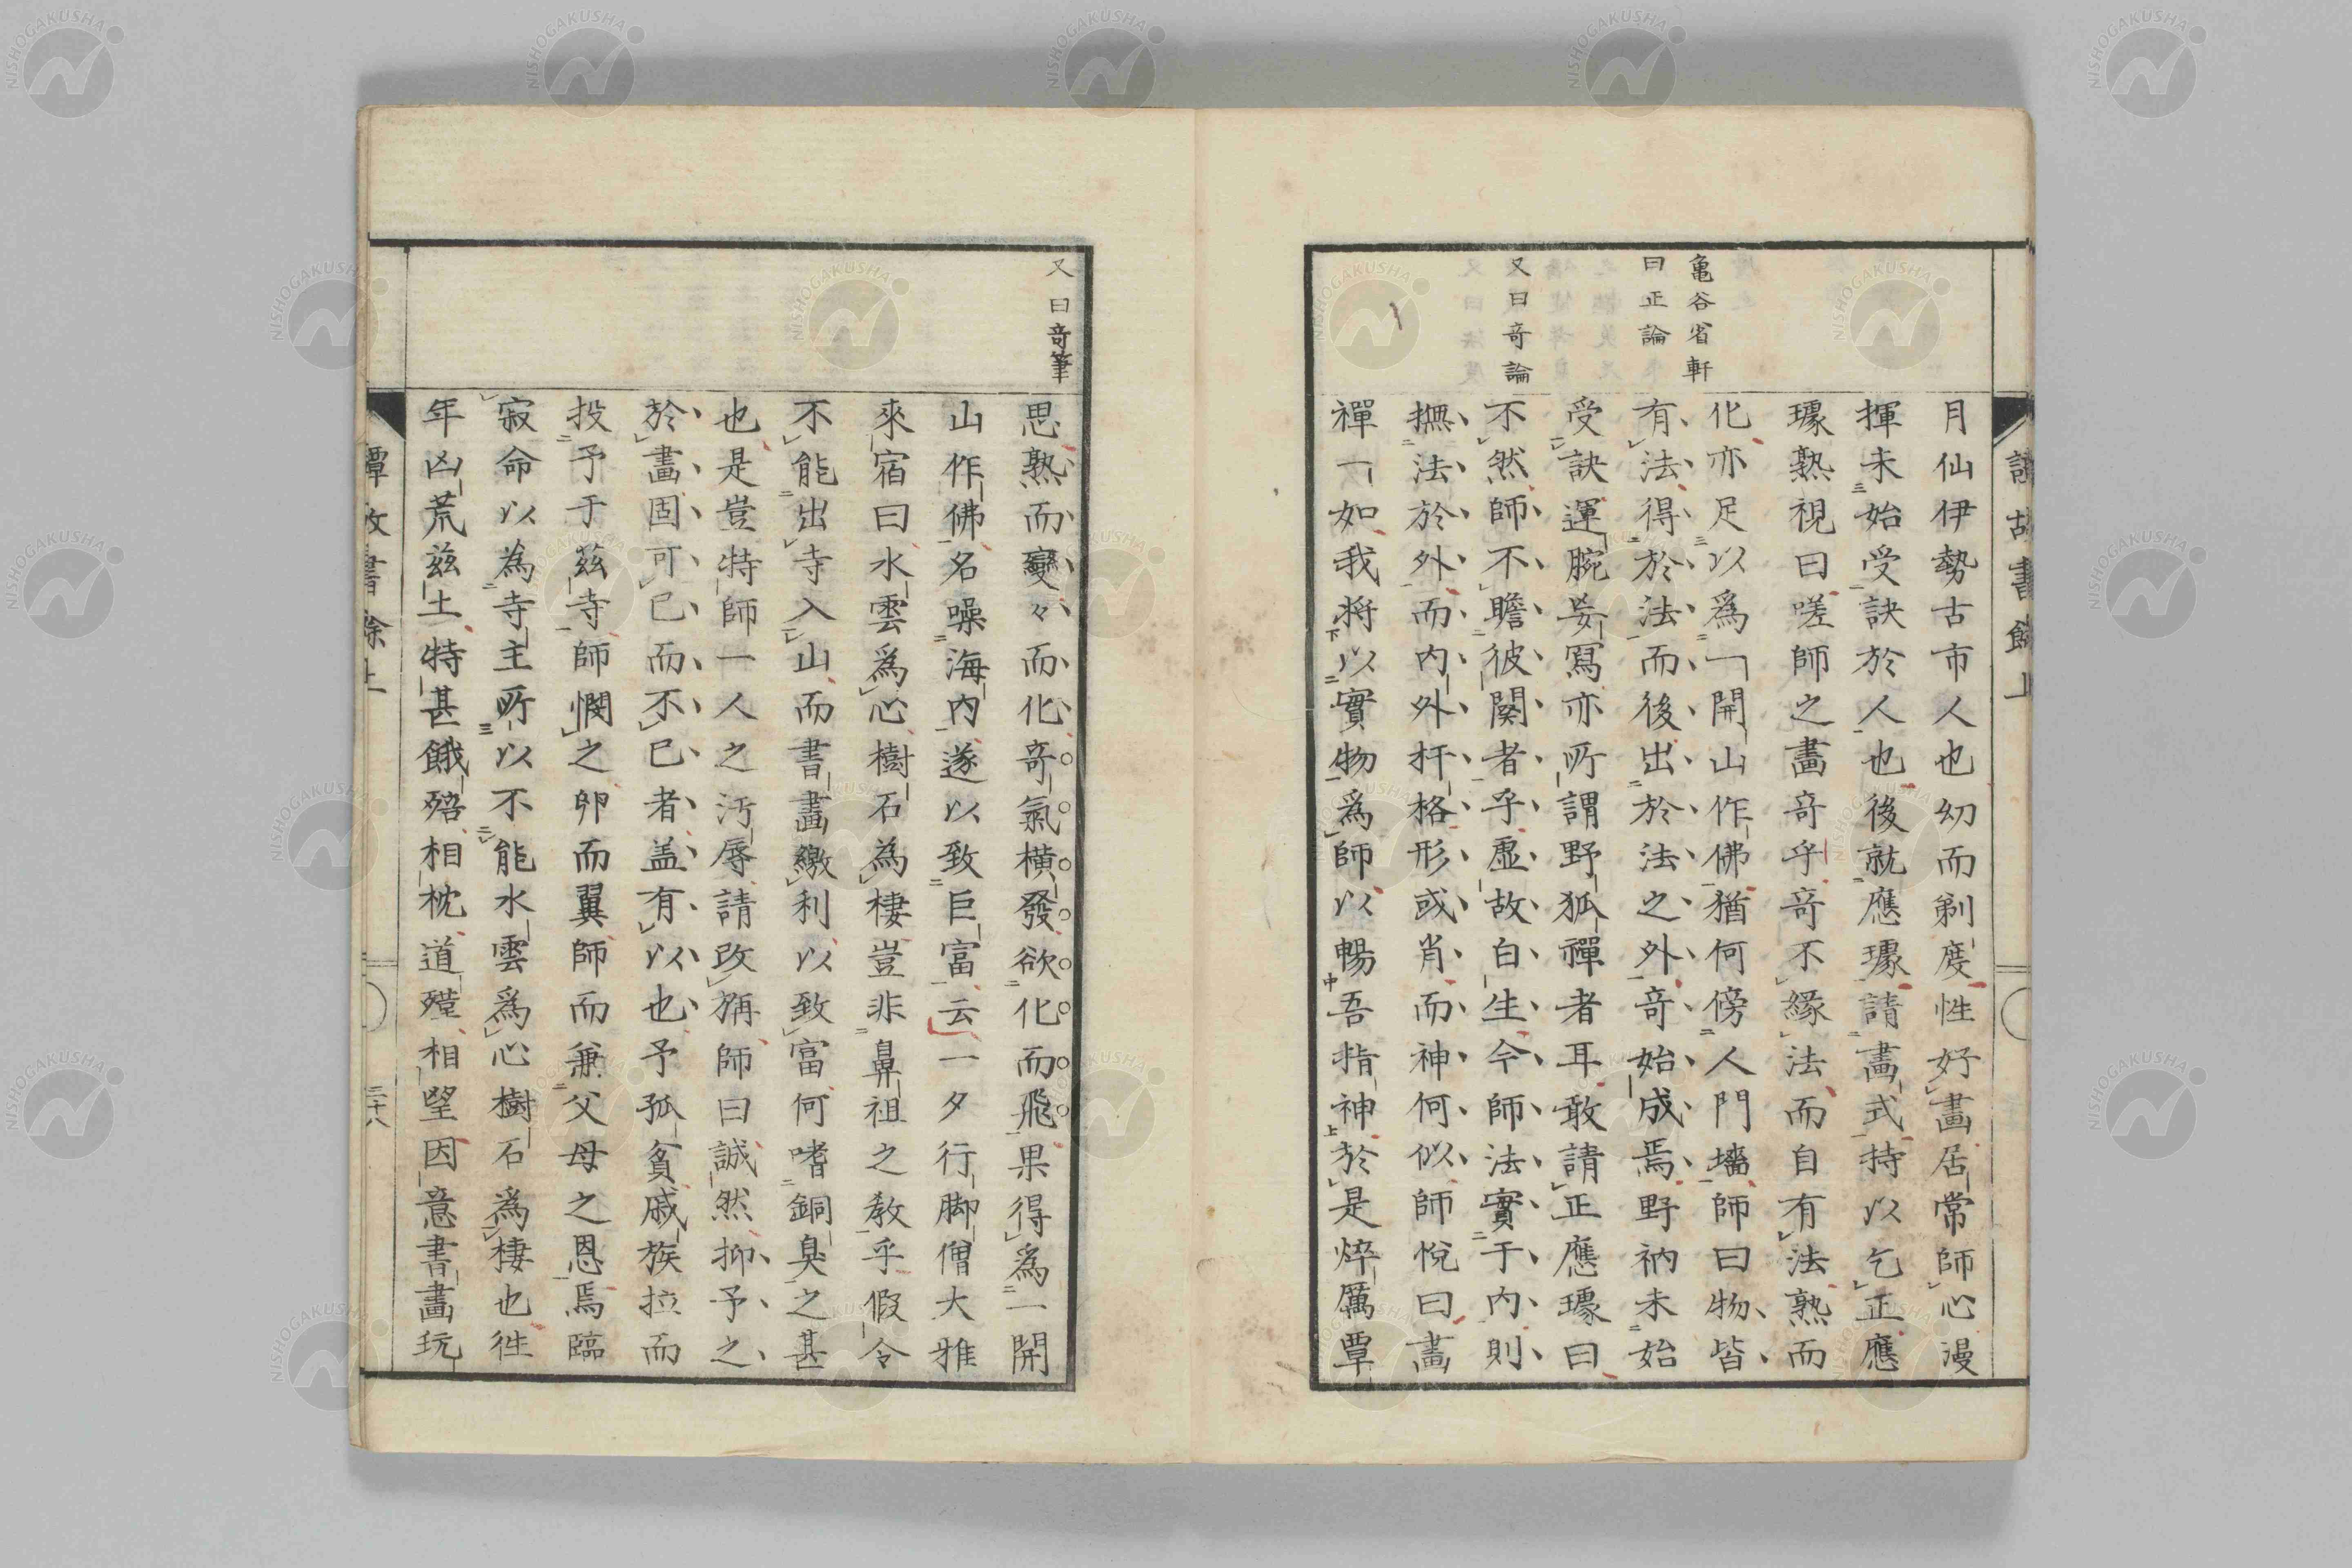 亀谷省軒
曰正論
又曰奇論
月仙伊勢古市人也幼而剃度性好畫居常師心漫
揮未始受訣於人也後就應璩請畫式持以乞正應
璩熟視曰嗟師之畫奇乎奇不緣法而自有法熟而
化亦足以爲一開山作佛猶何傍人門墻師曰物皆
有法得於法而後出於法之外奇始成焉野衲未始
受訣運腕妄寫亦所謂野狐禪者耳敢請正應璩曰
不然師不瞻彼閡者乎虛故白生今師法實于內則
撫法於外而內外扞格形或肖而神何似師悅曰畫
禪一如我將以實物爲師以暢吾指神於是焠厲覃
又曰奇筆
思熟而變々而化奇氣橫發欲化而飛果得爲一開
山作佛名噪海內遂以致巨富云一夕行脚僧大雅
來宿曰水雲爲心樹石為棲豈非鼻祖之教乎假令
不能出寺入山而書畫繳利以致富何嗜銅臭之甚
也是豈特師一人之汚辱請改稱師曰誠然抑予之
於畫固可已而不已者盖有以也予孤貧戚族拉而
投予于茲寺師憫之卵而翼師而兼父母之恩焉臨
寂命以為寺主所以不能水雲爲心樹石爲棲也徃
年凶荒茲土特甚餓殍相枕道殣相望因意書畫玩
譚故書餘上
三十八